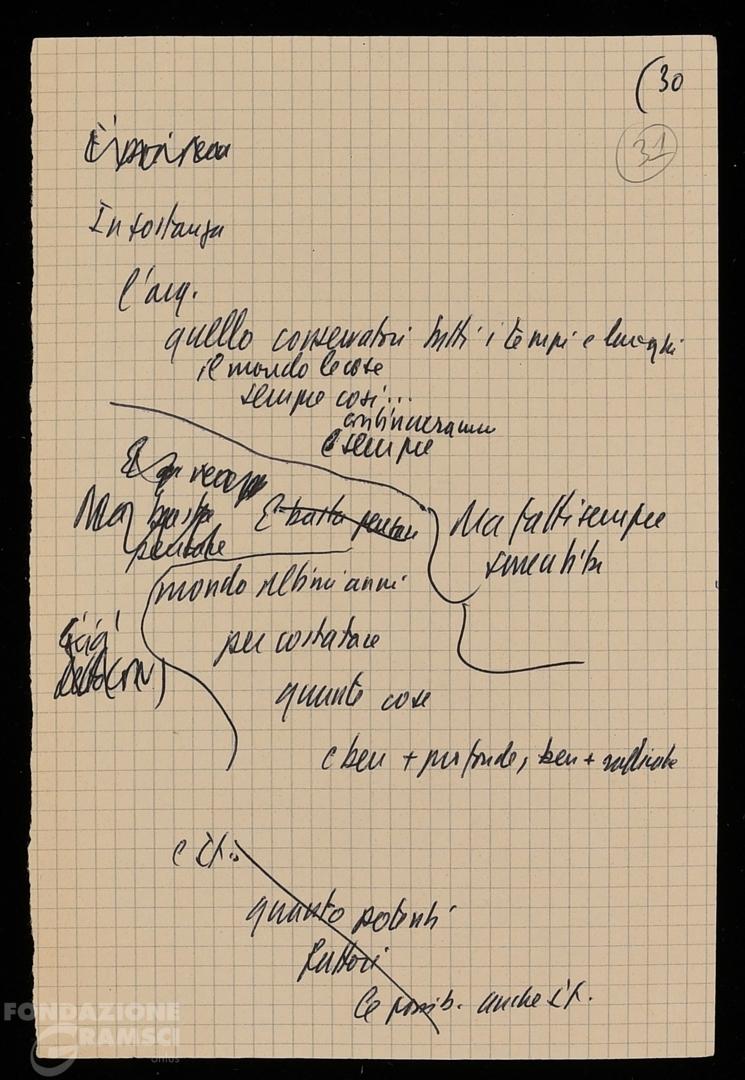 (30
31
In sostanza
l'arg.
quello conservatori tutti i tempi e luoghi
il mondo le cose
sempre così...
continueranno
e sempre
Ma basta
pensare
E basta pensare
Ma fatti sempre
smentiti
mondo ultimi anni
per costatare
quante cose
e ben + profonde, ben + radicate
e It.
quanto potenti
fattori
le possib. anche It.
FONDAZIONE
GRAMSCI
onlus